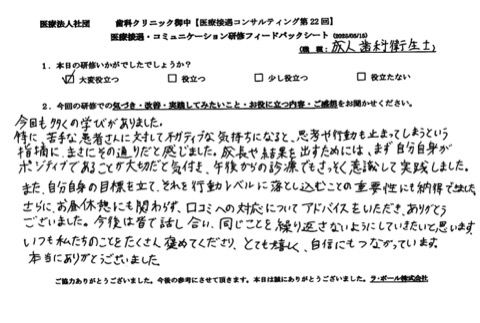 医療法人社団　　歯科クリニック御中【医療接遇コンサルティング第22回】
医療接遇・コミュニケーション研修フィードバックシート (2023/05/15)
(職種: 成人歯科衛生士)
1．本日の研修いかがでしたでしょうか？
☑ 大変役立つ　□ 役立つ　□ 少し役立つ　□ 役立たない
2．今回の研修での気づき・改善・実践してみたいこと・お役に立つ内容・ご感想をお聞かせください。
今回も多くの学びがありました。
特に、苦手な患者さんに対してネガティブな気持ちになると、思考や行動も止まってしまうという
指摘に、まさにその通りだと感じました。成長や結果を出すためには、まず自分自身が
ポジティブであることが大切だと気付き、午後からの診療でもさっそく意識して実践しました。
また、自分自身の目標を立て、それを行動レベルに落とし込むことの重要性にも納得できました。
さらに、お昼休憩にも関わらず、口コミへの対応についてアドバイスをいただき、ありがとう
ございました。今後は皆で話し合い、同じことを繰り返さないようにしていきたいと思います。
いつも私たちのことをたくさん褒めてくださり、とても嬉しく、自信にもつながっています。
本当にありがとうございました。
ご協力ありがとうございました。今後の参考にさせて頂きます。本日は誠にありがとうございました。ラ・ポール株式会社